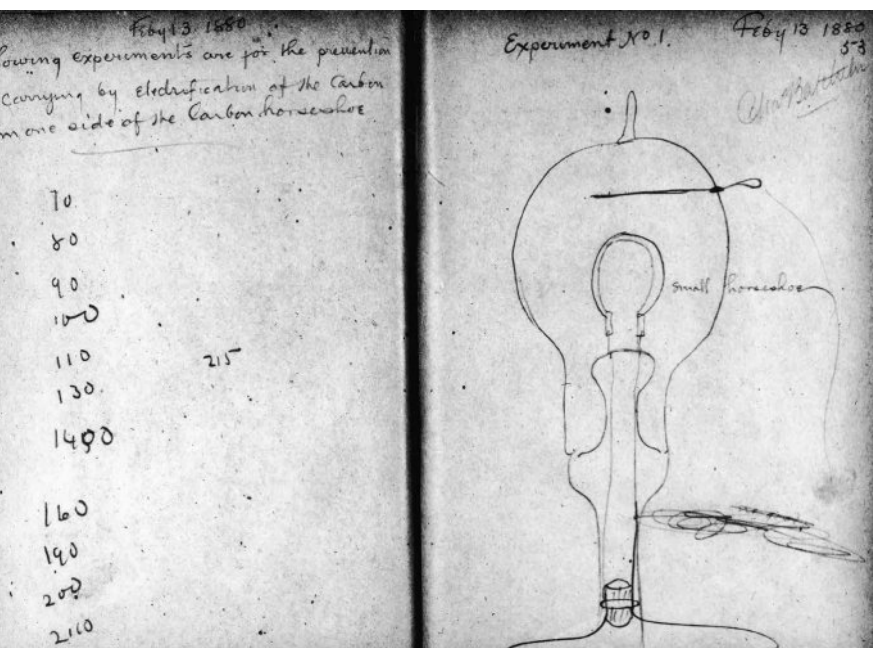 Feby 13 1880
lowing experiments are for the prevention
carrying by electrification of the Carbon
m one side of the Carbon horseshoe
70
80
90
100
110 215
130
1400
160
190
200
2110
Experiment No 1. Feby 13 1880
53
small horseshoe